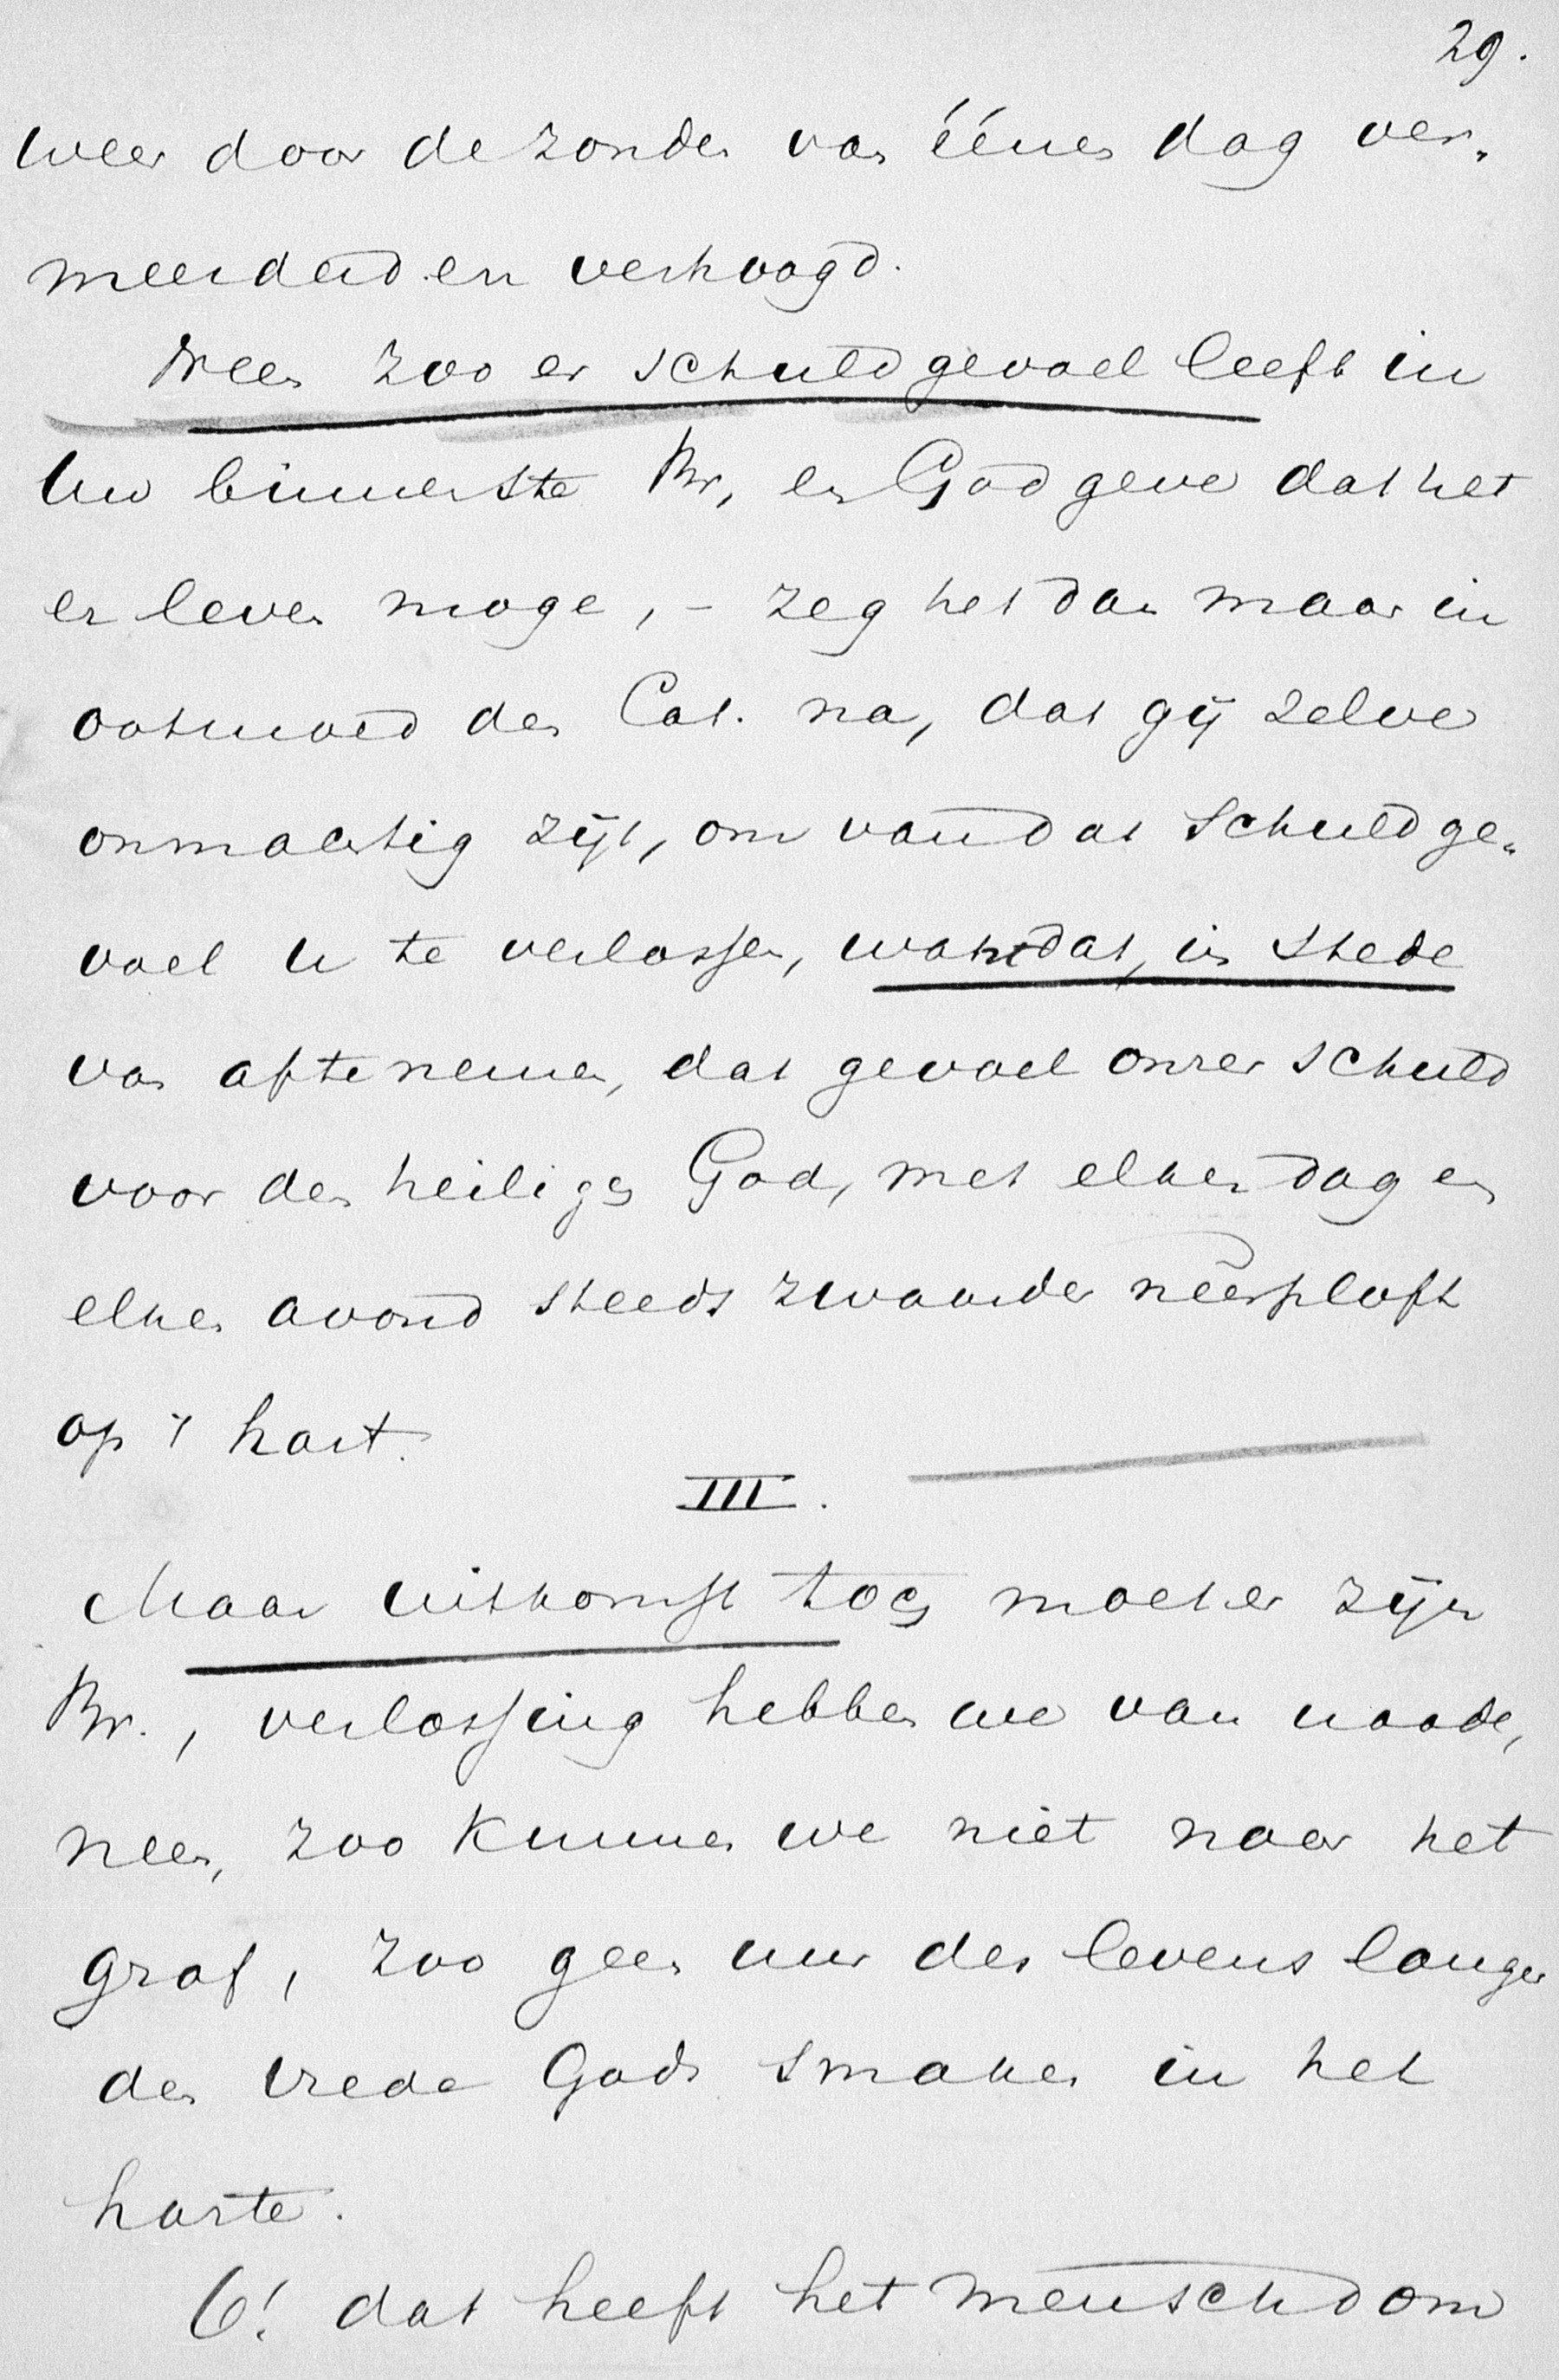 29.
weer door de zonden van éénen dag ver-
meerderd en verhoogd.
Neen zoo er schuldgevoel leeft in
Uw binnenste Br, en God geve dat het
er leven moge, - zeg het dan maar in
ootmoed den Cat. na, dat gij zelve
onmachtig zijt, om van dat schuldge-
voel u te verlossen, want dat, in stede
van afte nemen, dat gevoel onzer schuld
voor den heiligen God, met elken dag en
elken avond steeds zwaarder neêrploft
op 't hart.
III.
Maar uitkomst toch moet er zijn
Br., verlossing hebben we van noode,
neen, zoo kunnen we niet naar het
graf, zoo geen uur des levens langer
den vrede Gods smaken in het
harte.
O! dat heeft het menschdom